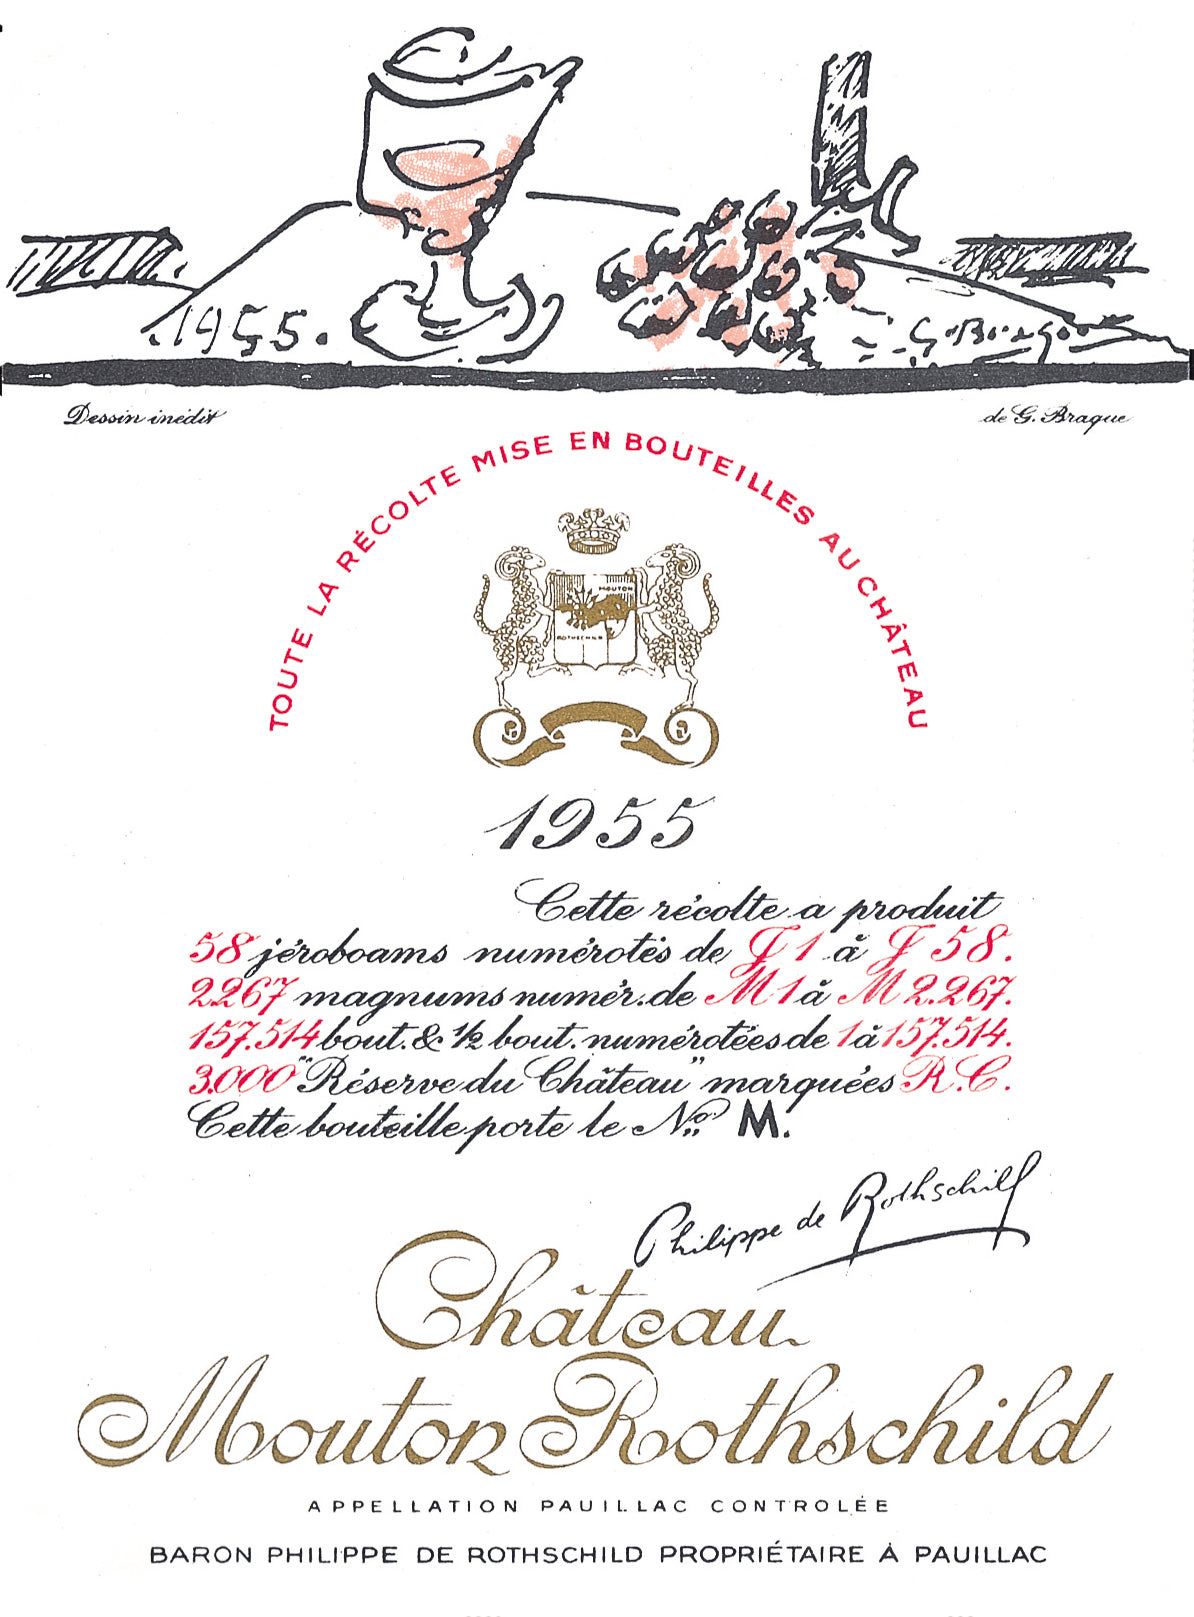 1955.
G. Braque
Dessin inédit
de G. Braque
TOUTE LA RÉCOLTE MISE EN BOUTEILLES AU CHÂTEAU
MOUTON
ROTHSCHILD
1955
Cette récolte a produit
58 jéroboams numérotés de J 1 à J 58.
2267 magnums numér. de M 1 à M 2.267.
157.514 bout. & 1/2 bout. numérotées de 1 à 157.514.
3.000 "Réserve du Château" marquées R.C.
Cette bouteille porte le No. M.
Philippe de Rothschild
Château
Mouton Rothschild
APPELLATION PAUILLAC CONTROLÉE
BARON PHILIPPE DE ROTHSCHILD PROPRIÉTAIRE À PAUILLAC